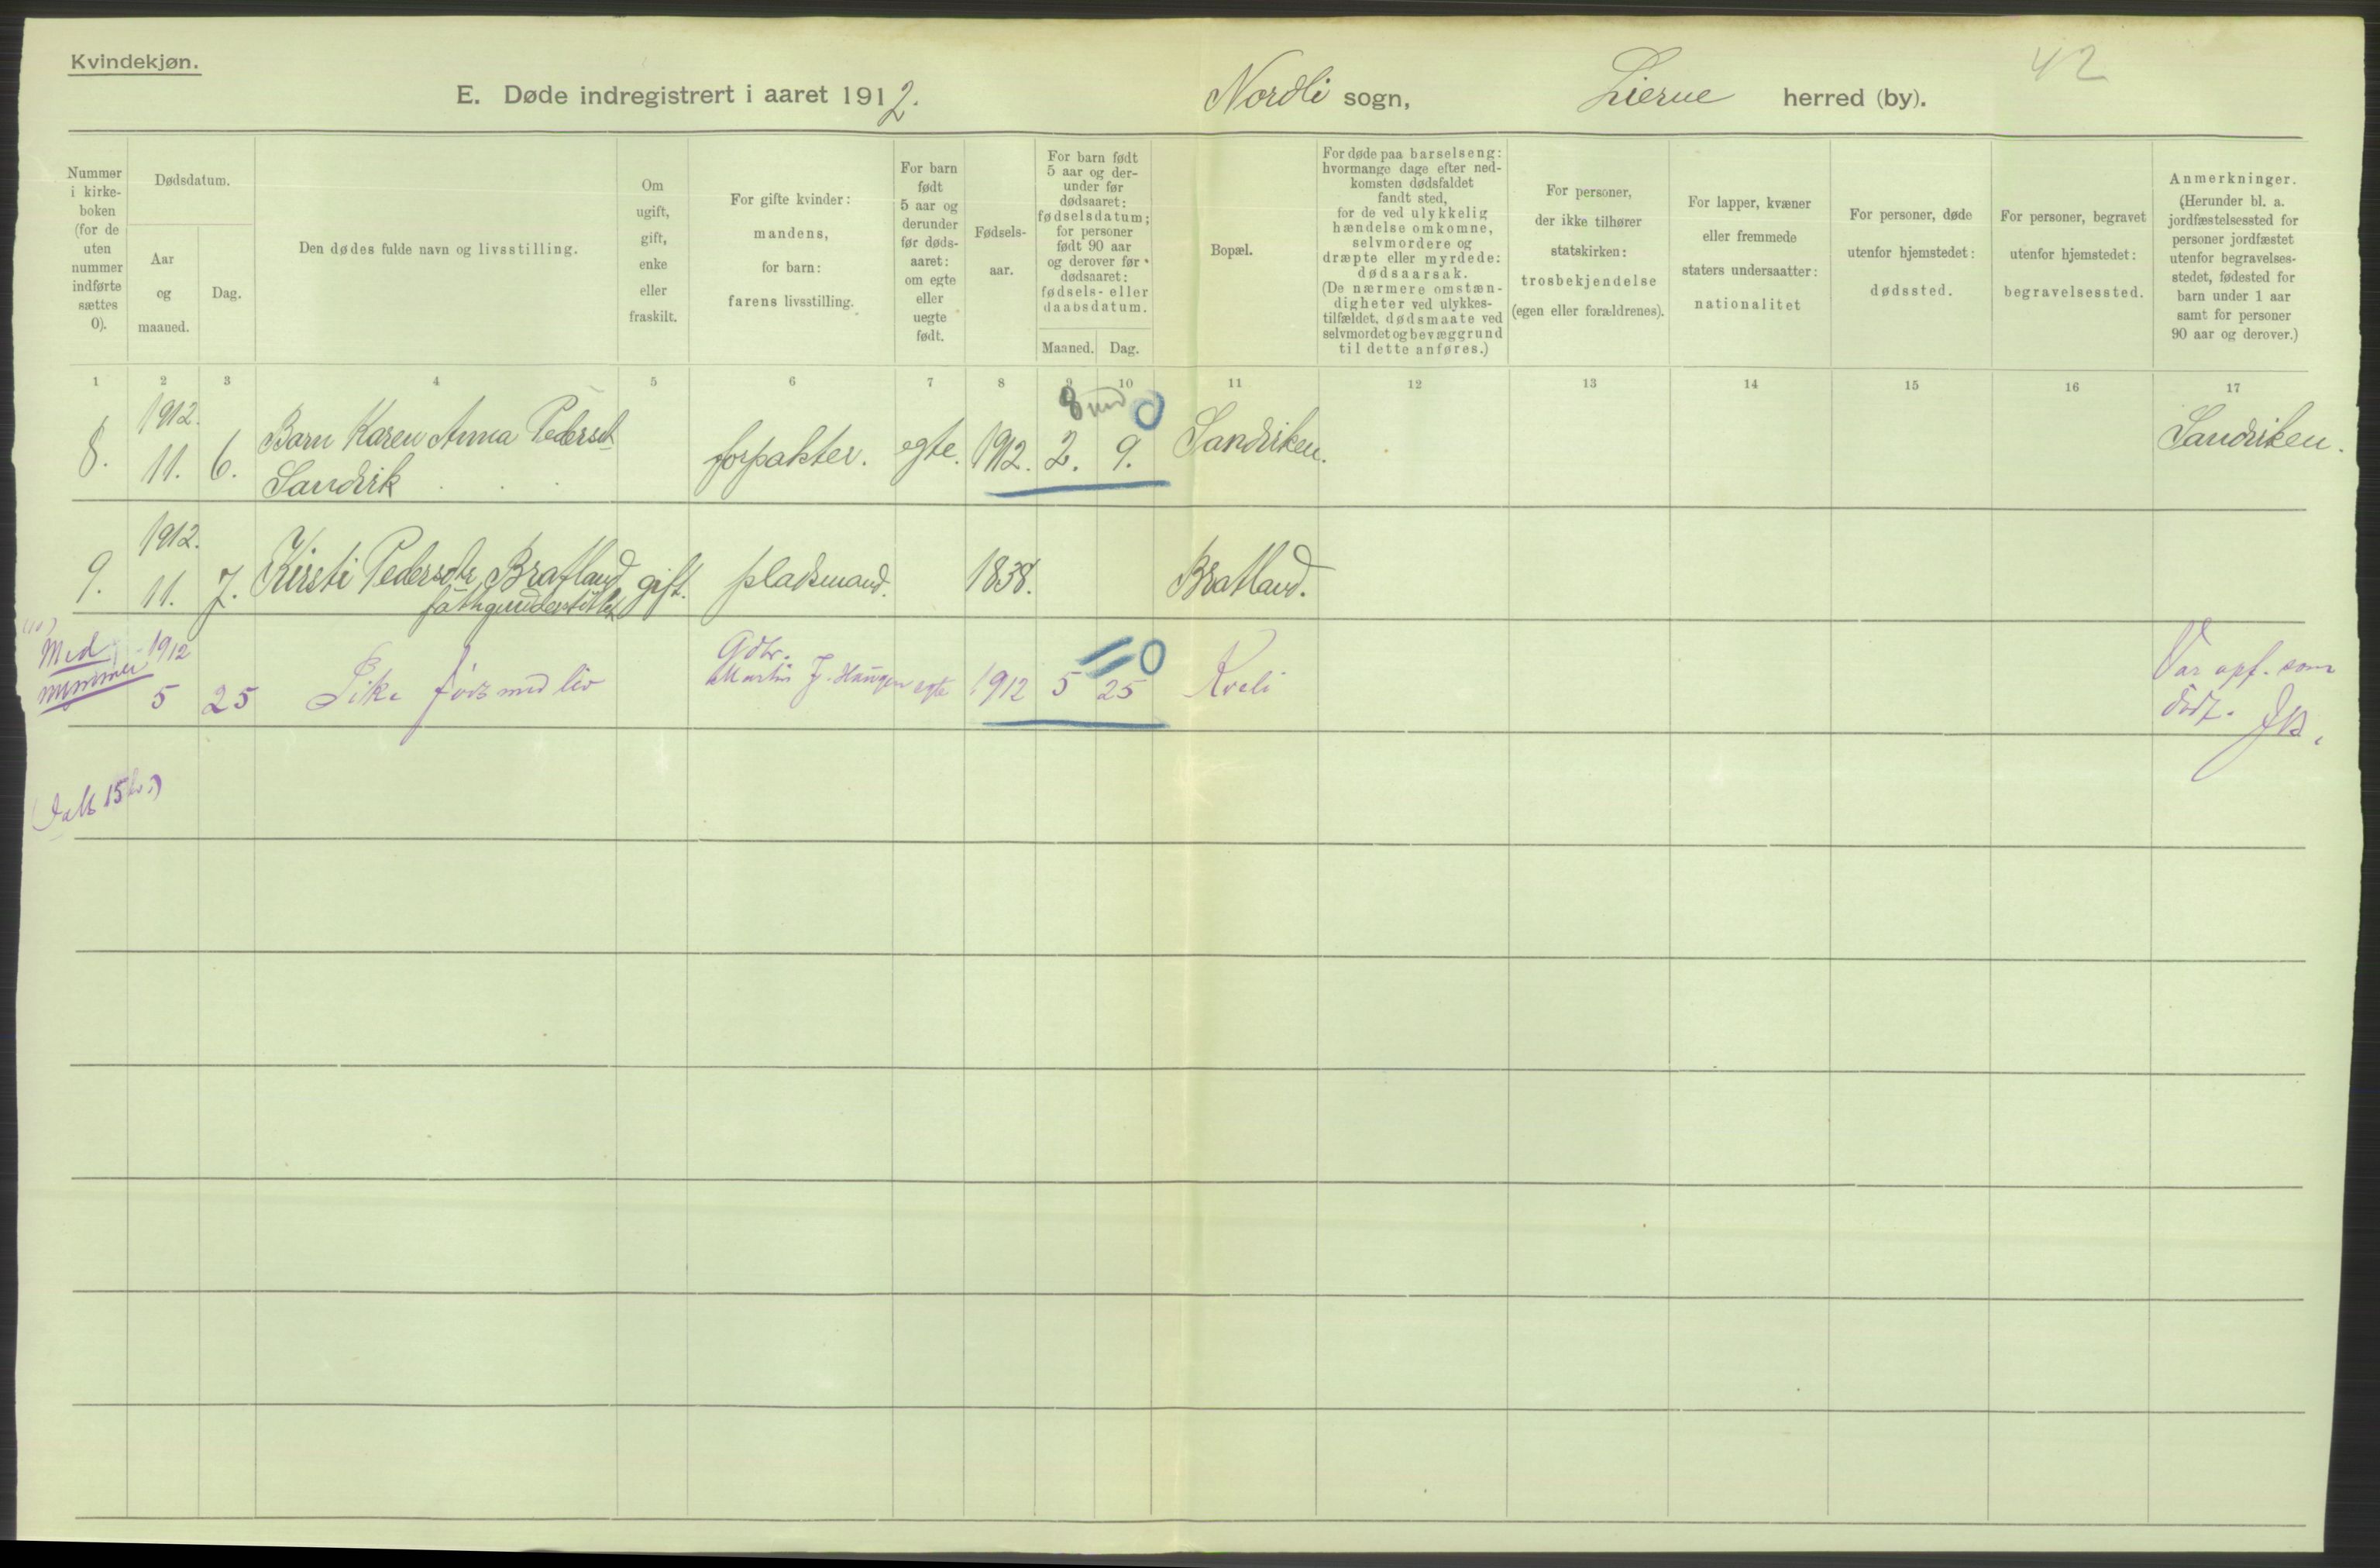 Kvindekjøn.
42
E. Døde indregistrert i aaret 1912. Nordli sogn, Lierne herred (by).
Nummer
i kirke-
boken
(for de
uten
nummer
indførte
sættes
0).
Dødsdatum.
Aar
og
maaned.
Dag.
Den dødes fulde navn og livsstilling.
Om
ugift,
gift,
enke
eller
fraskilt.
For gifte kvinder:
mandens,
for barn:
farens livsstilling.
For barn
født
5 aar og
derunder
før døds-
aaret:
om egte
eller
uegte
født.
Fødsels-
aar.
For barn født
5 aar og der-
under før
dødsaaret:
fødselsdatum;
for personer
født 90 aar
og derover før
dødsaaret:
fødsels- eller
daabsdatum.
Maaned.
Dag.
Bopæl.
For døde paa barselseng:
hvormange dage efter ned-
komsten dødsfaldet
fandt sted,
for de ved ulykkelig
hændelse omkomne,
selvmordere og
dræpte eller myrdede:
dødsaarsak.
(De nærmere omstæn-
digheter ved ulykkes-
tilfældet, dødsmaate ved
selvmordet og bevæggrund
til dette anføres.)
For personer,
der ikke tilhører
statskirken:
trosbekjendelse
(egen eller forældrenes).
For lapper, kvæner
eller fremmede
staters undersaatter:
nationalitet
For personer, døde
utenfor hjemstedet:
dødssted.
For personer, begravet
utenfor hjemstedet:
begravelsessted.
Anmerkninger.
(Herunder bl. a.
jordfæstelsessted for
personer jordfæstet
utenfor begravelses-
stedet, fødested for
barn under 1 aar
samt for personer
90 aar og derover.)
1 2 3 4 5 6 7 8 9 10 11 12 13 14 15 16 17
8 md 0
1912.
8. 11. 6. Barn Karen Anna Pedersdt forpakter. egte. 1912. 2. 9. Sandviken. Sandviken.
Sandvik
1912.
9. 11. 7. Kirsti Pedersdtr Bratland gift. pladsmand. 1838. Bratland.
fattigunderstøttet
(10)
Med
nummer
1912
5 25 Pike født med liv
Gdbr.
Martin J. Haugen egte 1912 5 25 Kveli
0
Var opf. som
dødf.
(Ialt 15 kv.)